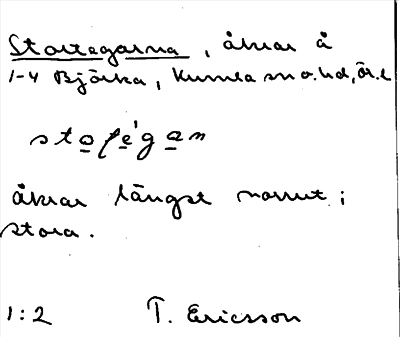 Stortegarna, åkrar å
1-4 Björka, Kumla sn o. hd, Ör. l
åkrar längst norrut i
stora.
1:2 T. Ericsson